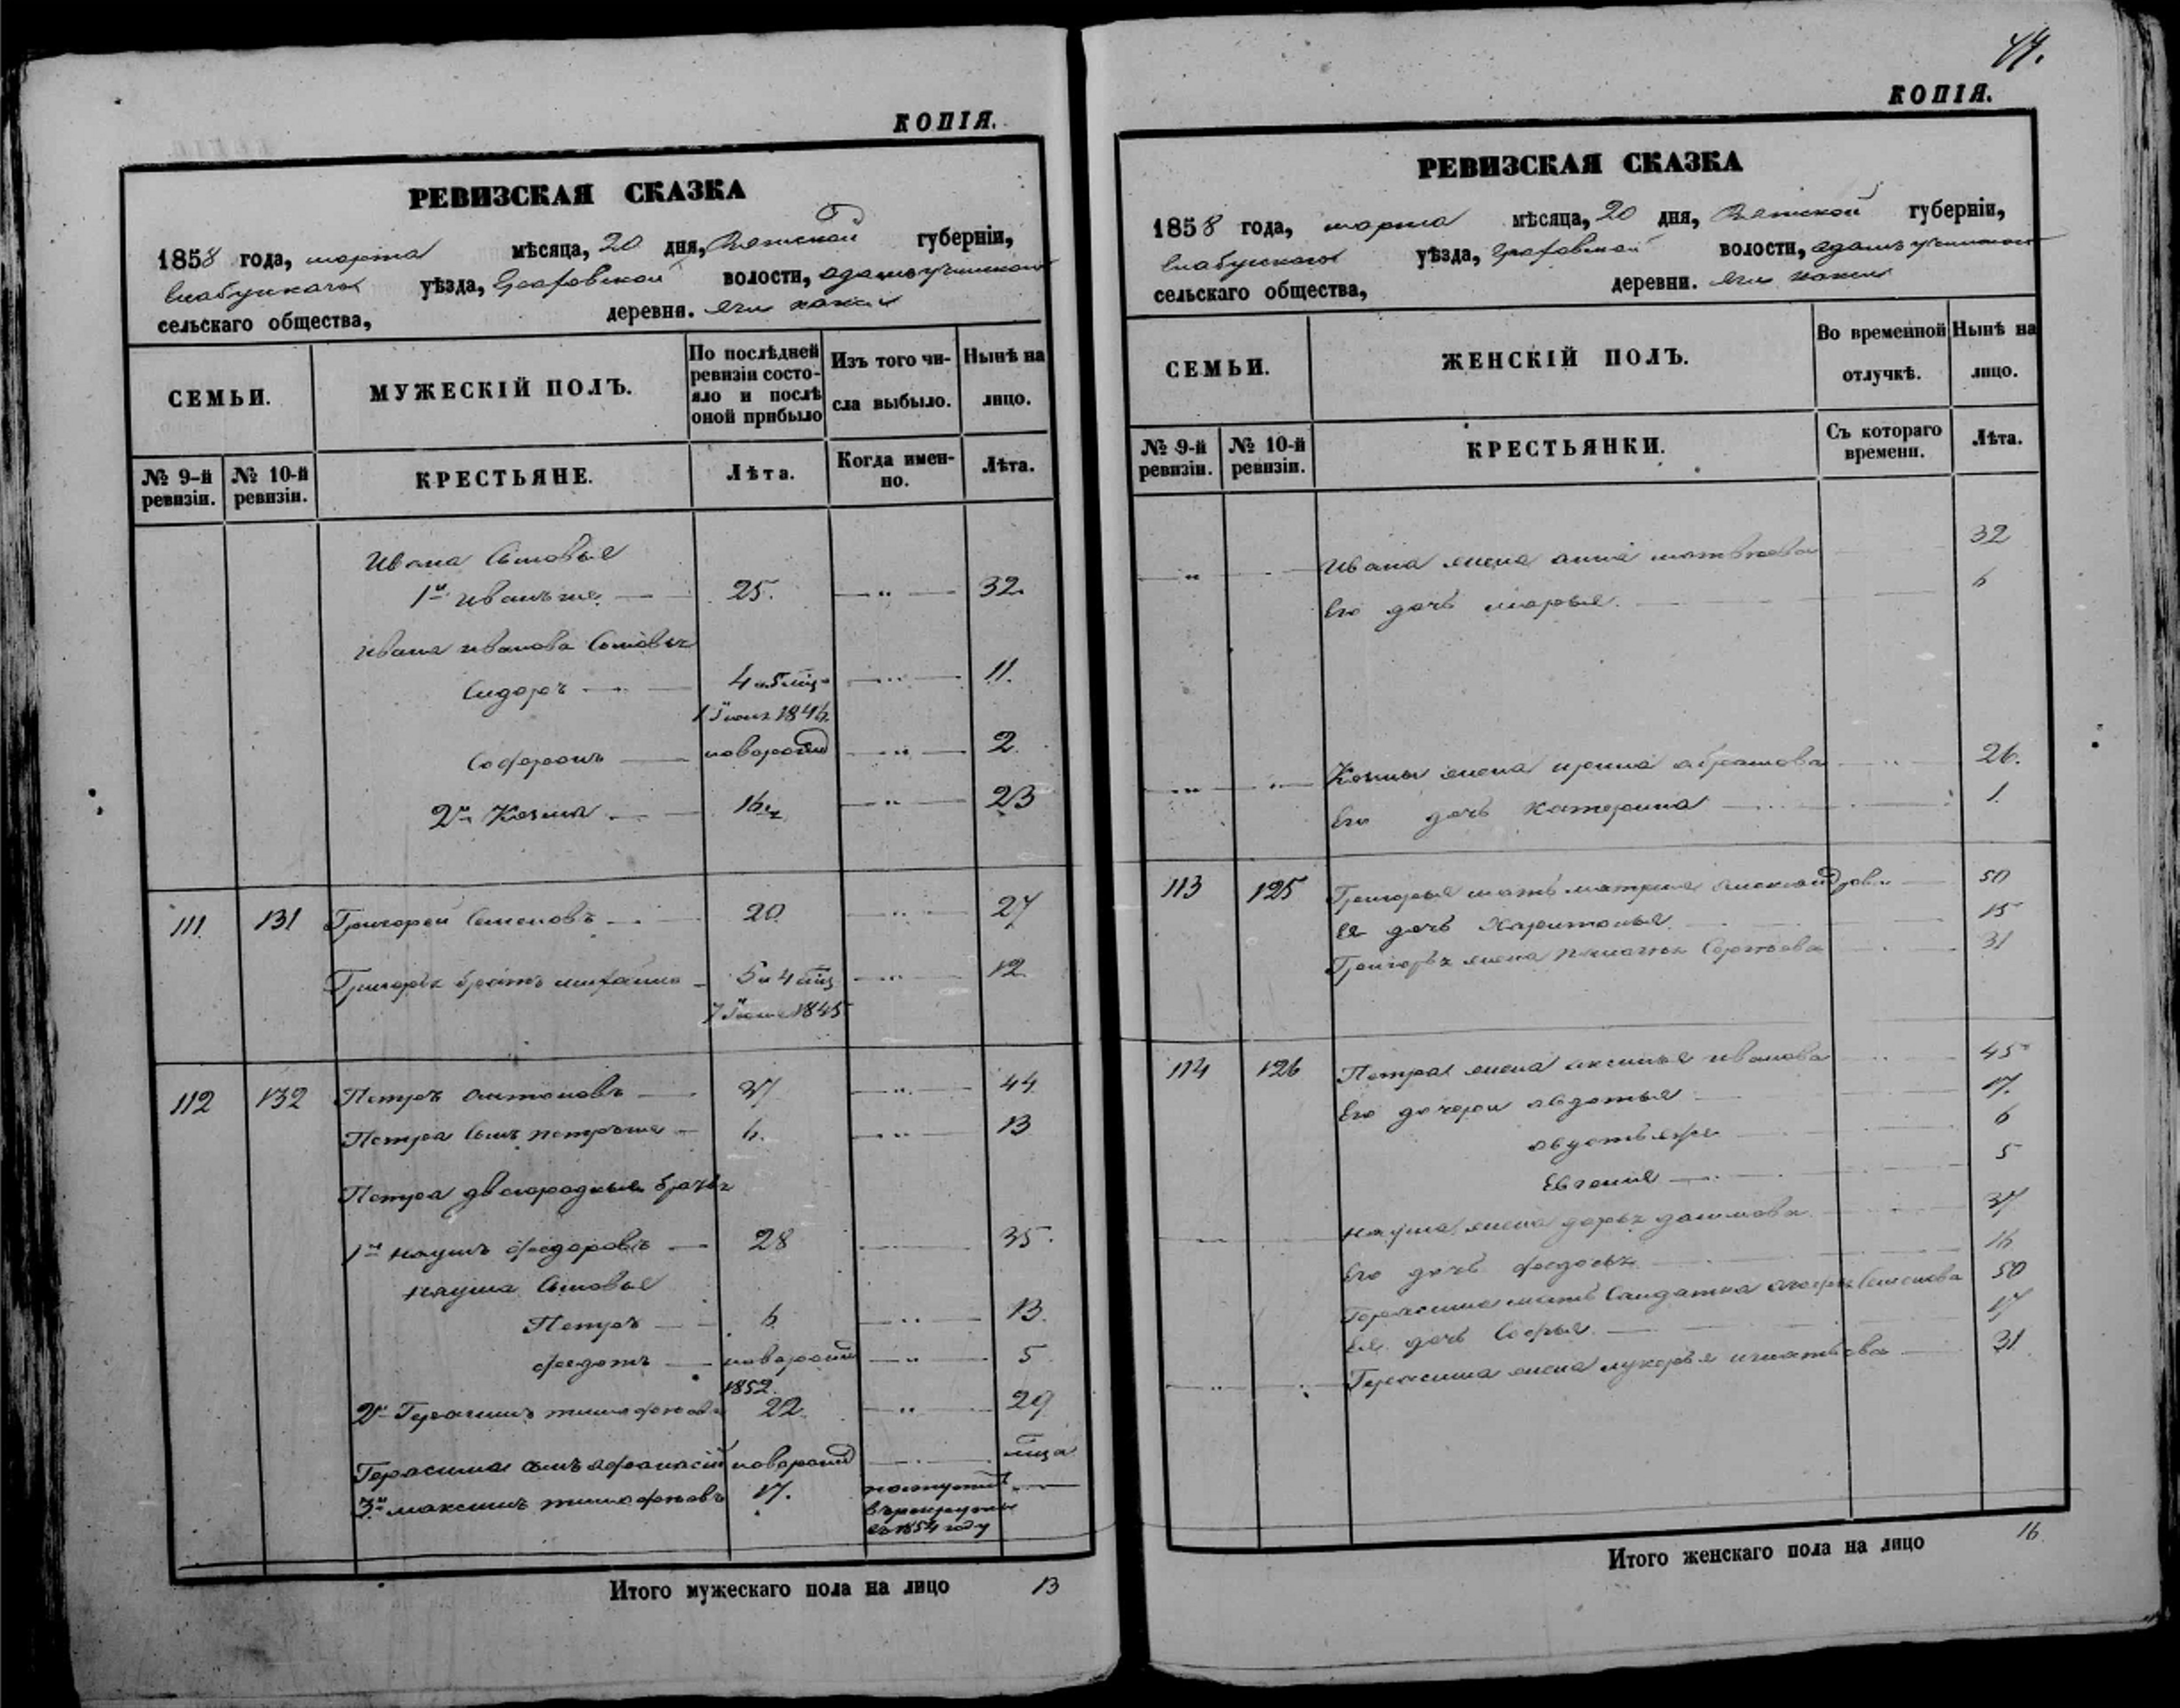 КОПІЯ.
РЕВИЗСКАЯ СКАЗКА
1858 года, марта мѣсяца, 20 дня, Вятской губерніи,
Елабужскаго уѣзда, Граховской волости,
сельскаго общества, деревни.
СЕМЬИ.
МУЖЕСКІЙ ПОЛЪ.
По послѣдней ревизіи состояло и послѣ оной прибыло
Изъ того числа выбыло.
Нынѣ на лицо.
№ 9-й ревизіи.
№ 10-й ревизіи.
КРЕСТЬЯНЕ.
Лѣта.
Когда именно.
Лѣта.
Ивана Сыновья
1й Иванъ же 25. 32.
Ивана Иванова Сыновья
Сидоръ 11.
Софронъ новорожд 2.
2й Козма 16 23
111 131 Григорей Семеновъ 20 27
Григорья братъ Михайло 5 и 4 мца 12.
112 132 Петръ Антоновъ 37 44
Петра Сынъ Петръ же 6. 13
Петра двоюродныя братья
1й Наумъ Федоровъ 28 35.
Наума Сыновья
Петръ 6 13.
Федотъ новорожд 5
1852.
2й Герасимъ 22 29
Герасима сынъ Афанасій новорожд мца
3й Максимъ 17. поступил
в рекруты
въ 1854 году
Итого мужескаго пола на лицо 13
47.
КОПІЯ.
РЕВИЗСКАЯ СКАЗКА
1858 года, марта мѣсяца, 20 дня, Вятской губерніи,
Елабужскаго уѣзда, Граховской волости,
сельскаго общества, деревни.
СЕМЬИ.
ЖЕНСКІЙ ПОЛЪ.
Во временной отлучкѣ.
Нынѣ на лицо.
№ 9-й ревизіи.
№ 10-й ревизіи.
КРЕСТЬЯНКИ.
Съ котораго времени.
Лѣта.
Ивана жена Анна Матвѣева 32
Его дочь Марья 6
Козмы жена Ирина Абрамова 26.
Его дочь Катерина 1.
113 125 Григорья мать Матрена Александрова 50
Ея дочь Харитонья 15
Григорья жена 31
114 126 Петра жена Аксинья Иванова 45
Его дочери Авдотья 17.
Авдотья же 6
Евгенія 5
Наума жена Дарья 37
Его дочь Федосья 16
Герасима мать Солдатка Семенова 50
Ея дочь Софья 17
Герасима жена Лукерья Игнатьева 31
Итого женскаго пола на лицо 16